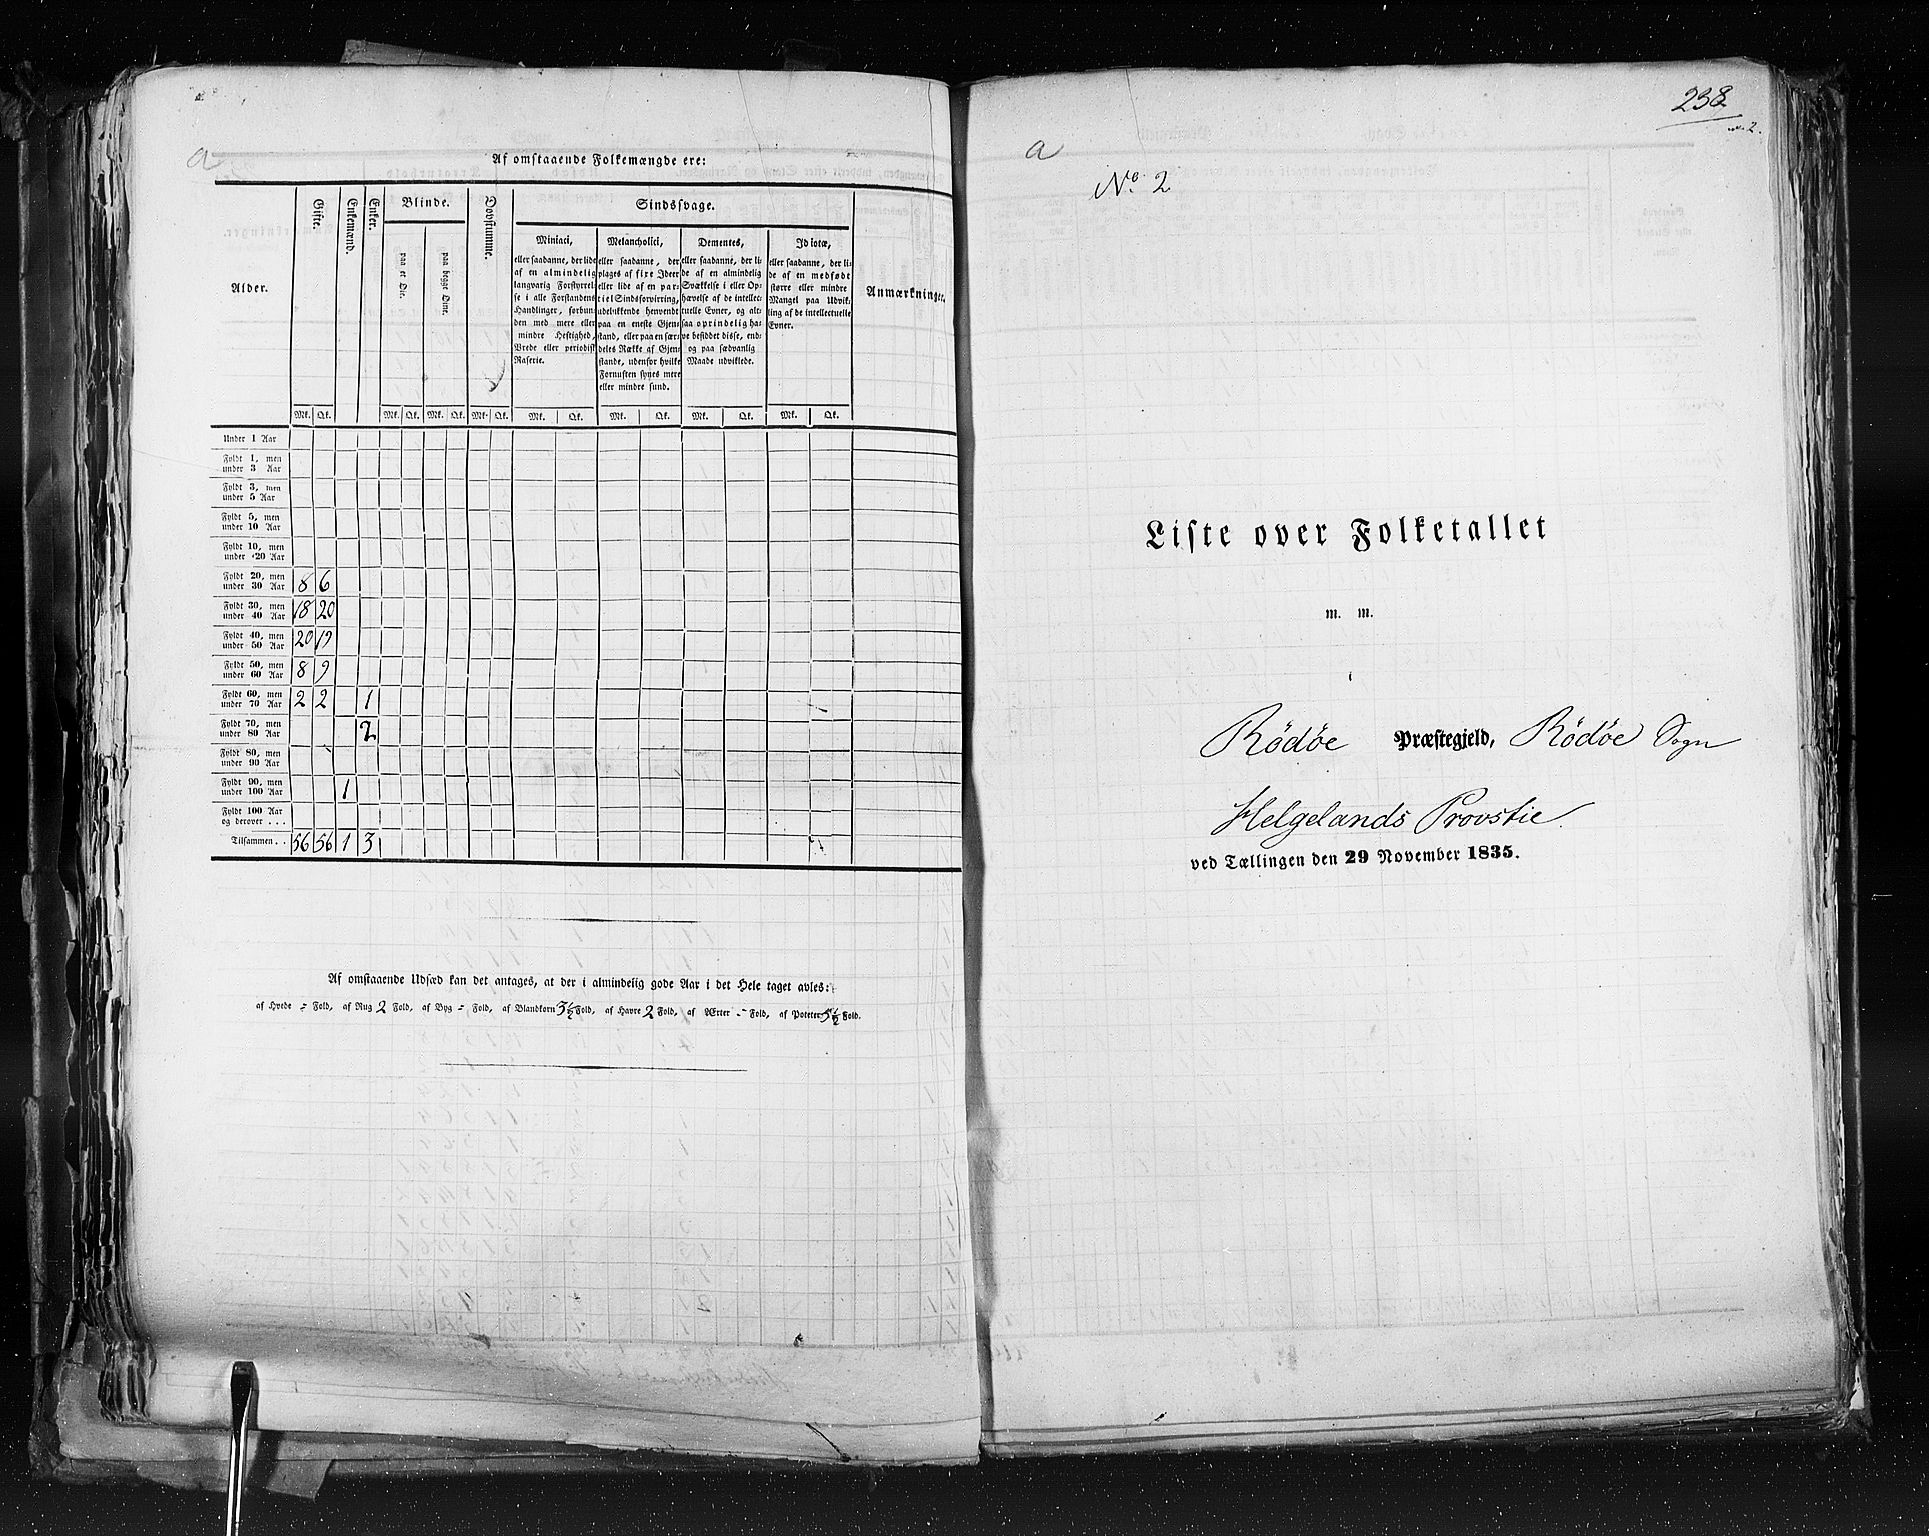 a
Af omstaaende Folkemængde ere:
Alder.
Gifte.
Enkemænd.
Enker.
Blinde.
paa et Øie.
paa begge Øine.
Døvstumme.
Sindssvage.
Miniaci,
eller saadanne, der lide
af en almindelig
langvarig Forstyrrel-
se i alle Forstandens
Handlinger, forbun-
den med mere eller
mindre Heftighed,
Vrede eller periodisk
Raserie.
Melancholici,
eller saadanne, der
plages af fixe Ideer
eller lide af en par-
tiel Sindsforvirring,
udelukkende henvende
paa en eneste Gjen-
stand, eller paa en sær-
deles Række af Gjen-
stande, udenfor hvilke
Fornuften synes mere
eller mindre sund.
Dementes,
eller saadanne, der li-
de af en almindelig
Svækkelse i eller Op-
hævelse af de intellec-
tuelle Evner, og alt-
saa oprindelig ha-
ve besiddet disse, end-
og paa sædvanlig
Maade udviklede.
Idiotæ,
eller saadanne, der li-
de af en medfødt
større eller mindre
Mangel paa Udvik-
ling af de intellectuelle
Evner.
Anmærkninger.
Mk. Qk. Mk. Qk. Mk. Qk. Mk. Qk. Mk. Qk. Mk. Qk. Mk. Qk. Mk. Qk.
Under 1 Aar
Fyldt 1, men
under 3 Aar
Fyldt 3, men
under 5 Aar
Fyldt 5, men
under 10 Aar
Fyldt 10, men
under 20 Aar
Fyldt 20, men
under 30 Aar 8 6
Fyldt 30, men
under 40 Aar 18 20
Fyldt 40, men
under 50 Aar 20 19
Fyldt 50, men
under 60 Aar 8 9
Fyldt 60, men
under 70 Aar 2 2 1
Fyldt 70, men
under 80 Aar 2
Fyldt 80, men
under 90 Aar
Fyldt 90, men
under 100 Aar 1
Fyldt 100 Aar
og derover . . .
Tilsammen . . 56 56 1 3
Af omstaaende Udsæd kan det antages, at der i almindelig gode Aar i det Hele taget avles:
af Hvede = Fold, af Rug 2 Fold, af Byg = Fold, af Blandkorn 3½ Fold, af Havre 2 Fold, af Ærter - Fold, af Poteter 5½ Fold.
238
a
No. 2
Liste over Folketallet
m. m.
i
Rödøe Præstegjeld, Rödøe Sogn
Helgelands Provstie
ved Tællingen den 29 November 1835.